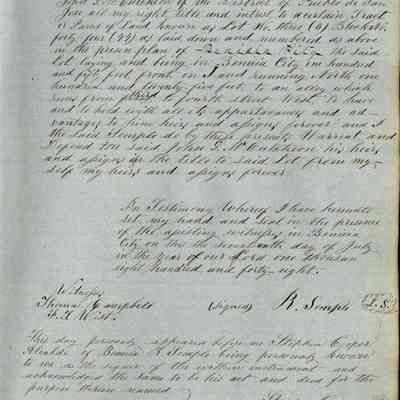 John D. McCutcheon of the District of Pueblo de San
Jose all my right title and interest to a certain Tract
& Parcel of Land known as Lot No. three (3) Block No.
forty four (44) as laid down and numbered as above
in the present plan of Benicia City the said
Lot laying and being in Benicia City one hundred
and fifty feet front on I and running North one
hundred and twenty-five feet to an alley which
runs from third to fourth street West. To have
and to hold with all its appurtenances and ad-
vantages to him heirs and assigns forever and I
the said Semple do by these presents Warrant and
Defend the said John D. McCutcheon his heirs
and assigns in the title to said Lot from my-
self my heirs and assigns forever
In Testimony Whereof I have hereunto
set my hand and Seal in the presence
of the assisting witnesses in Benicia
City on this the seventeenth day of July
in the year of our Lord one thousand
eight hundred and forty-eight.
Witnesses
Thomas Campbell (signed) R. Semple L.S.
F. L. West.
This day personally appeared before me Stephen Cooper
Alcalde of Benicia R. Semple being personally known
to me as the signer of the within instrument and
acknowledged the same to be his act and deed for the
purpose therein named